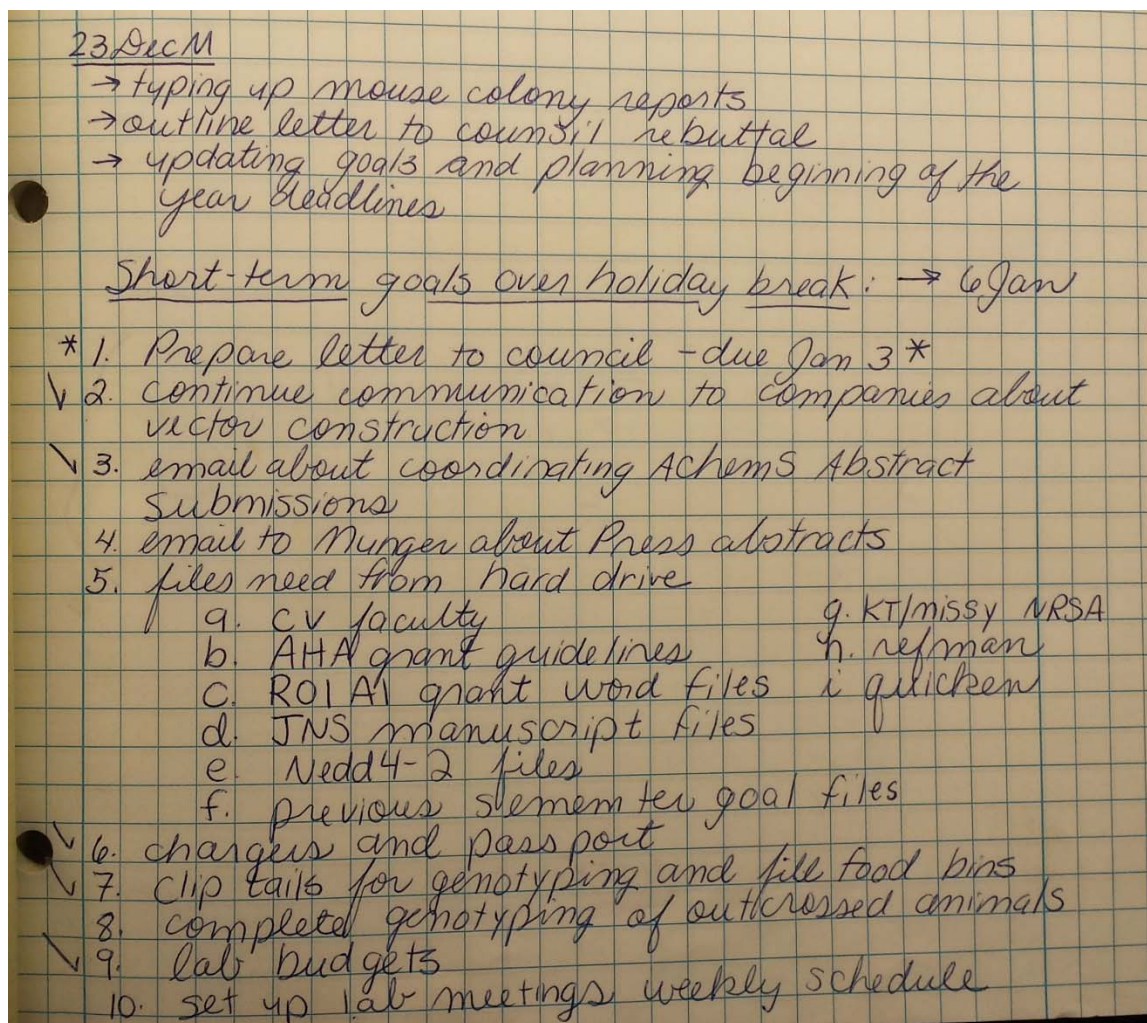 23 Dec M
→ typing up mouse colony reports
→ outline letter to council rebuttal
→ updating goals and planning beginning of the
year deadlines
Short-term goals over holiday break: → 6 Jan
* 1. Prepare letter to council - due Jan 3 *
✓ 2. continue communication to companies about
vector construction
✓ 3. email about coordinating AChemS Abstract
Submissions
4. email to Munger about Press abstracts
5. files need from hard drive
a. CV faculty
g. KT/missy NRSA
b. AHA grant guidelines
h. refman
c. RO1 A1 grant word files
i quicken
d. JNS manuscript files
e. Nedd4-2 files
f. previous sememter goal files
✓ 6. chargers and passport
✓ 7. clip tails for genotyping and file food bins
8. complete genotyping of outcrossed animals
✓ 9. lab budgets
10. set up lab meetings weekly schedule